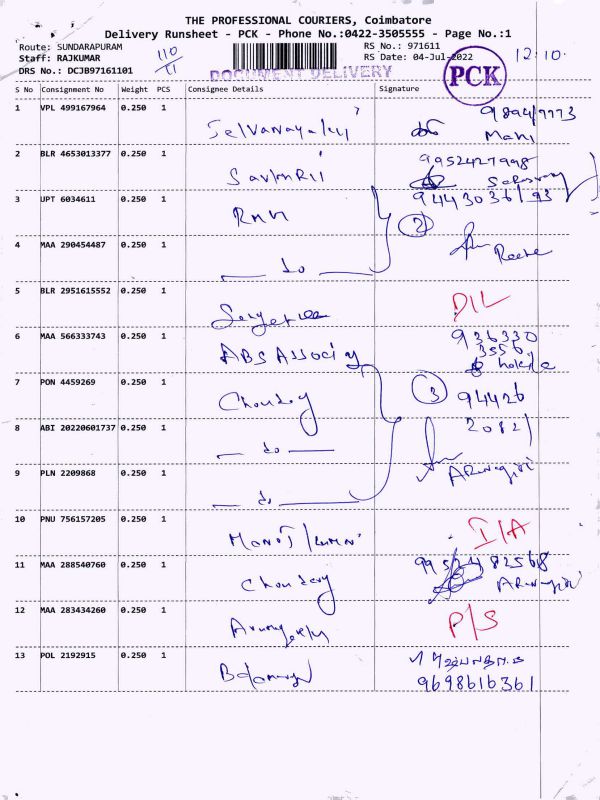 THE PROFESSIONAL COURIERS, Coimbatore
Delivery Runsheet - PCK - Phone No.:0422-3505555 - Page No.:1
Route: SUNDARAPURAM
Staff: RAJKUMAR
DRS No.: DCJB97161101
110/11
RS No.: 971611
RS Date: 04-Jul-2022
12:10
DOCUMENT DELIVERY
PCK
S No Consignment No Weight PCS Consignee Details Signature
1 VPL 499167964 0.250 1
Mani
2 BLR 4653013377 0.250 1 9952427998
3 UPT 6034611 0.250 1 RMN 9443036193
2
4 MAA 290454487 0.250 1 do
5 BLR 2951615552 0.250 1 D/L
6 MAA 566333743 0.250 1 ABS Associ 936330
3556
7 PON 4459269 0.250 1 Choudry 3 94426
8 ABI 20220601737 0.250 1 do 20821
9 PLN 2209868 0.250 1 do Arunagiri
10 PNU 756157205 0.250 1 Manoj Kumar I/A
11 MAA 288540760 0.250 1 Choudry 9952482568
Arunagiri
12 MAA 283434260 0.250 1 P/S
13 POL 2192915 0.250 1
9698616361